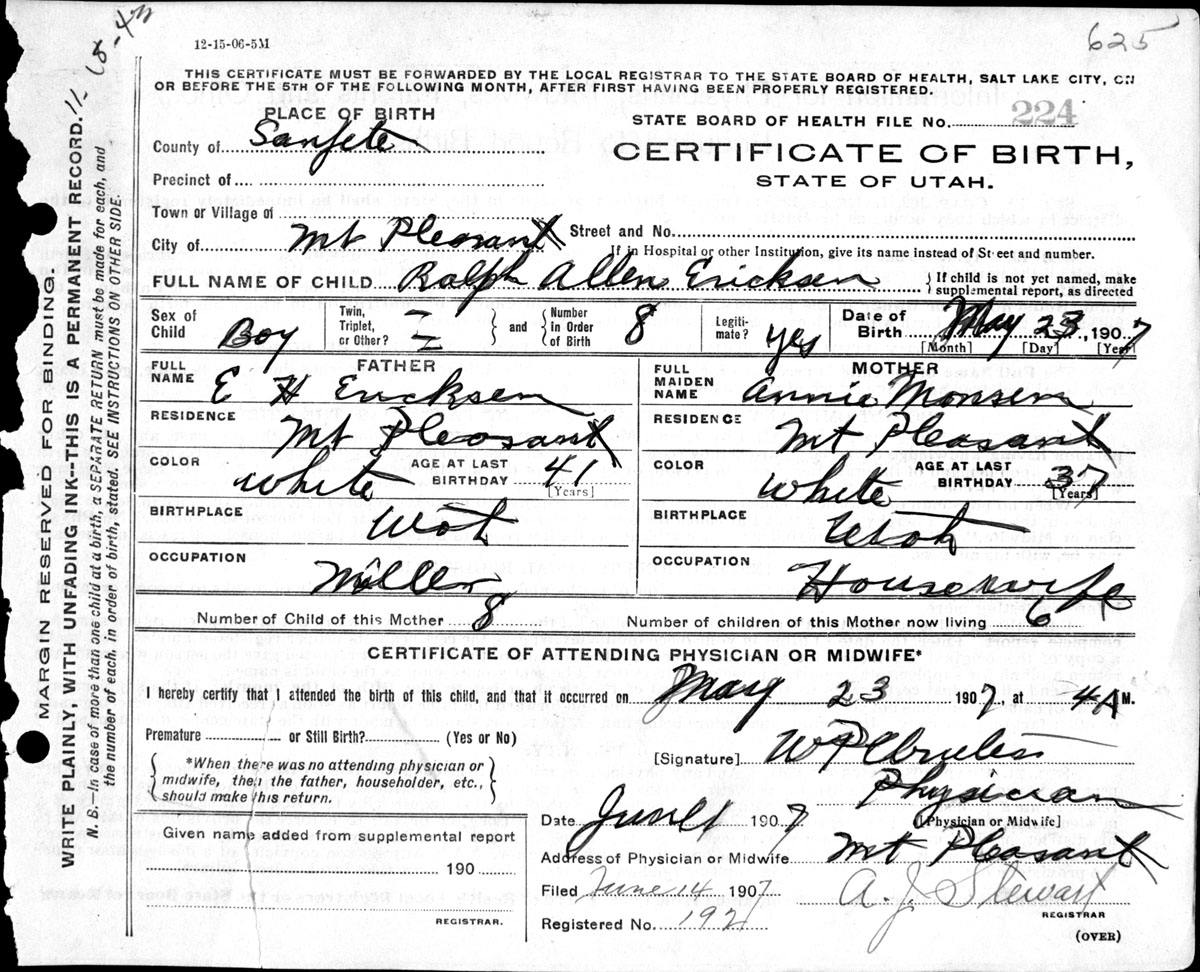 625
12-15-06-5M
11-18-4th
THIS CERTIFICATE MUST BE FORWARDED BY THE LOCAL REGISTRAR TO THE STATE BOARD OF HEALTH, SALT LAKE CITY, ON
OR BEFORE THE 5TH OF THE FOLLOWING MONTH, AFTER FIRST HAVING BEEN PROPERLY REGISTERED.
PLACE OF BIRTH
STATE BOARD OF HEALTH FILE No. 224
County of Sanpete
CERTIFICATE OF BIRTH,
STATE OF UTAH.
Precinct of
Town or Village of
City of Mt Pleasant Street and No.
If in Hospital or other Institution, give its name instead of Street and number.
FULL NAME OF CHILD Ralph Allen Ericksen { If child is not yet named, make supplemental report, as directed
Sex of Child Boy Twin, Triplet, or Other? } and { Number in Order of Birth 8 Legiti-mate? yes Date of Birth May 23, 1907
[Month] [Day] [Year]
FATHER
FULL NAME E H Ericksen
RESIDENCE Mt Pleasant
COLOR White AGE AT LAST BIRTHDAY 41
[Years]
BIRTHPLACE Utah
OCCUPATION Miller
MOTHER
FULL MAIDEN NAME Annie Monsen
RESIDENCE Mt Pleasant
COLOR White AGE AT LAST BIRTHDAY 37
[Years]
BIRTHPLACE Utah
OCCUPATION Housewife
Number of Child of this Mother 8 Number of children of this Mother now living 6
CERTIFICATE OF ATTENDING PHYSICIAN OR MIDWIFE*
I hereby certify that I attended the birth of this child, and that it occurred on May 23 1907, at 4 A M.
Premature or Still Birth? (Yes or No)
{ *When there was no attending physician or midwife, then the father, householder, etc., should make this return. }
[Signature]
Physician
[Physician or Midwife]
Date 1907
Address of Physician or Midwife Mt Pleasant
Given name added from supplemental report
190
REGISTRAR.
Filed June 14 1907 A. J. Stewart
REGISTRAR
Registered No. 192
(OVER)
MARGIN RESERVED FOR BINDING.
WRITE PLAINLY, WITH UNFADING INK--THIS IS A PERMANENT RECORD.
N. B.--In case of more than one child at a birth, a SEPARATE RETURN must be made for each, and
the number of each, in order of birth, stated. SEE INSTRUCTIONS ON OTHER SIDE.